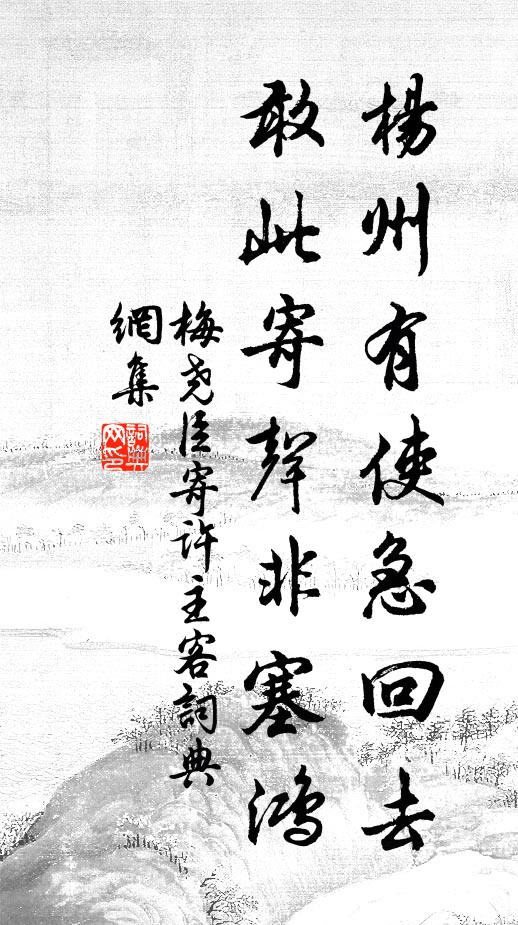 楊州有使急回去
敢此寄聲非塞鴻
梅尧臣寄许主客詞典
網集